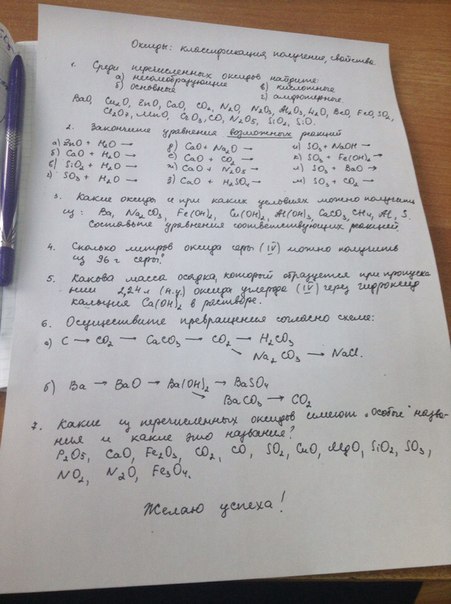 Оксиды: классификация, получение, свойства.
1. Среди перечисленных оксидов найдите:
а) несолеобразующие в) кислотные
б) основные г) амфотерные.
BaO, Cu2O, ZnO, CaO, CO2, N2O, N2O3, Al2O3, Li2O, BeO, FeO, SO2,
MnO, CO, N2O5, SiO2, SiO.
2. Закончите уравнения возможных реакций
а) ZnO + H2O → д) CaO + Na2O → и) SO3 + NaOH →
б) CaO + H2O → е) CaO + CO2 → к) SO3 + Fe(OH)2 →
в) SiO2 + H2O → ж) CaO + N2O5 → л) SO3 + BaO →
г) SO3 + H2O → з) CaO + H2SO4 → м) SO3 + CO2 →
3. Какие оксиды и при каких условиях можно получить
из: Ba, Na2CO3, Fe(OH)2, Cu(OH)2, Al(OH)3, CaCO3, CH4, Al, S.
Составьте уравнения соответствующих реакций.
4. Сколько литров оксида серы (IV) можно получить
из 96 г серы?
5. Какова масса осадка, который образуется при пропуска
нии 2,24 л (н.у.) оксида углерода (IV) через гидроксид
кальция Ca(OH)2 в растворе.
6. Осуществите превращения согласно схеме:
а) C → CO2 → CaCO3 → CO2 → H2CO3
↘ Na2CO3 → NaCl.
б) Ba → BaO → Ba(OH)2 → BaSO4
↘ BaCO3 → CO2
7. Какие из перечисленных оксидов имеют "особые" назва-
ния и какие это названия?
P2O5, CaO, Fe2O3, CO2, CO, SO2, CuO, MgO, SiO2, SO3,
NO2, N2O, Fe3O4.
Желаю успеха!